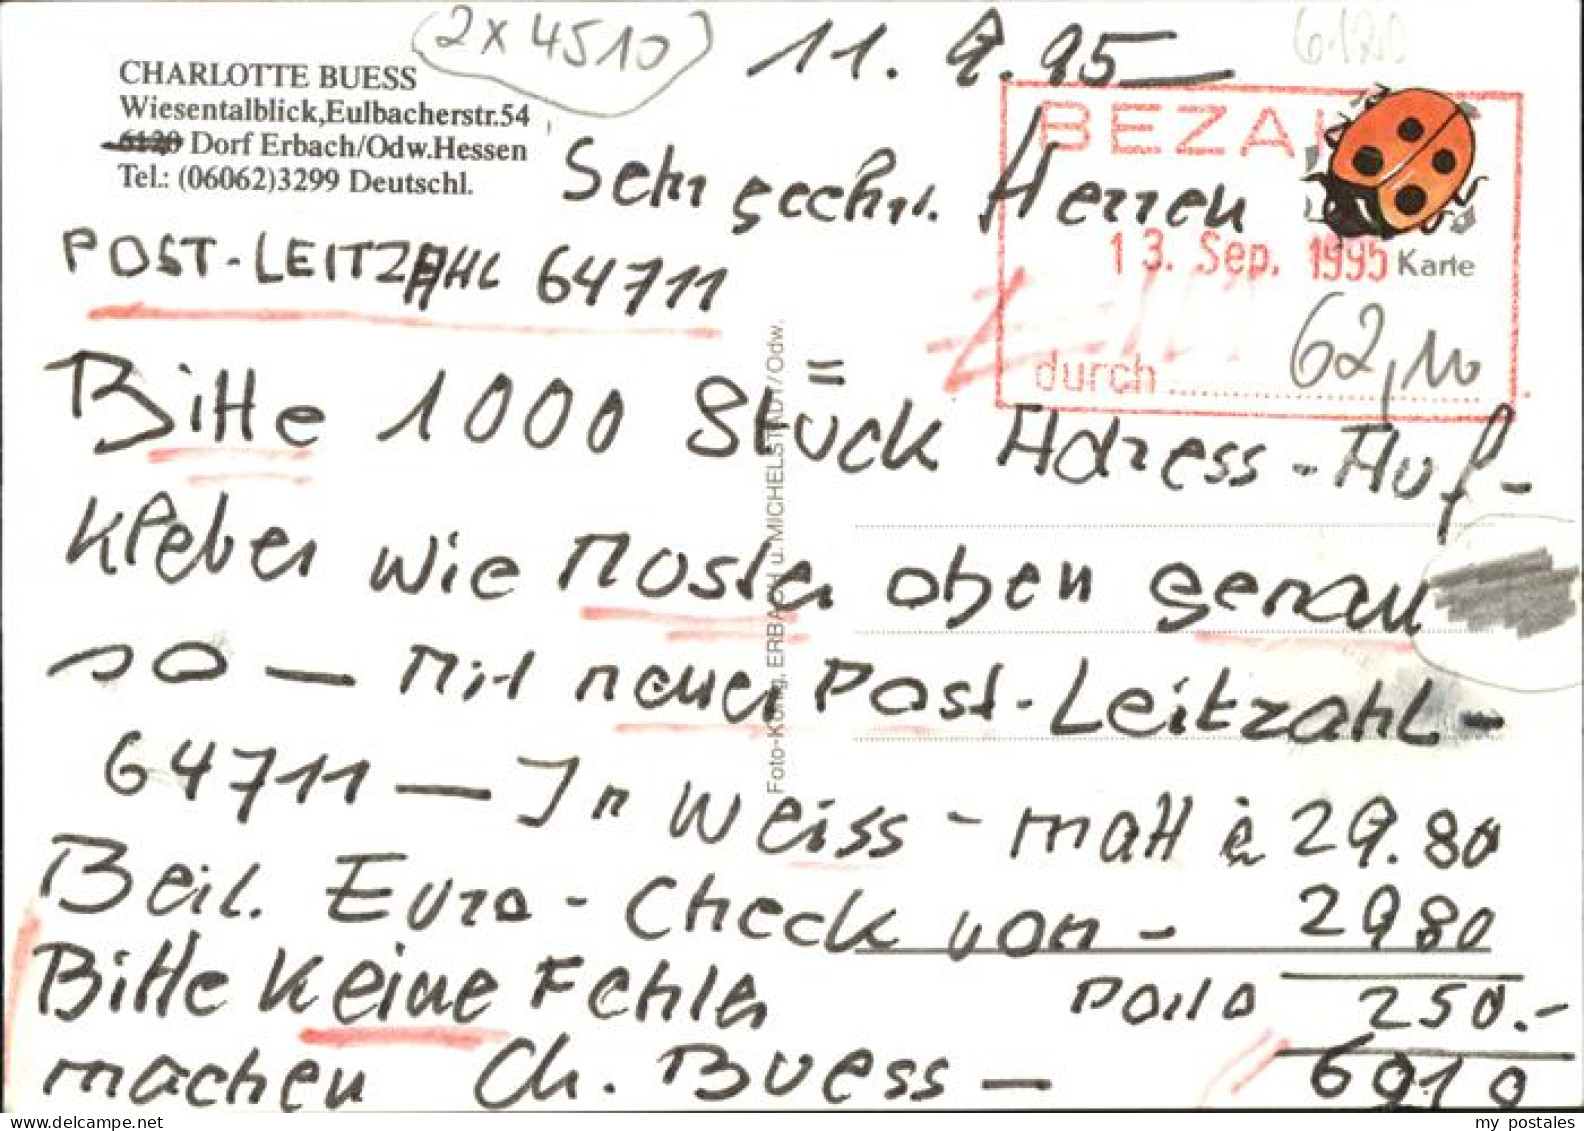 (2 x 4510)
11. 9. 95
CHARLOTTE BUESS
Wiesentalblick,Eulbacherstr.54
6120 Dorf Erbach/Odw.Hessen
Tel.: (06062)3299 Deutschl.
BEZA
13. Sep. 1995
Karte
durch
62,10
Sehr geehrt. Herren
POST-LEITZAHL 64711
Bitte 1000 Stück Adress-Auf-
kleber wie Muster oben genau
so — Mit neuer Post-Leitzahl-
64711 — In weiss - matt à 29.80
Beil. Euro-Check von - 29 80
Bitte keine Fehler Porto 250.-
machen Ch. Buess —
Foto-König, ERBACH u. MICHELSTADT/Odw.
my postales